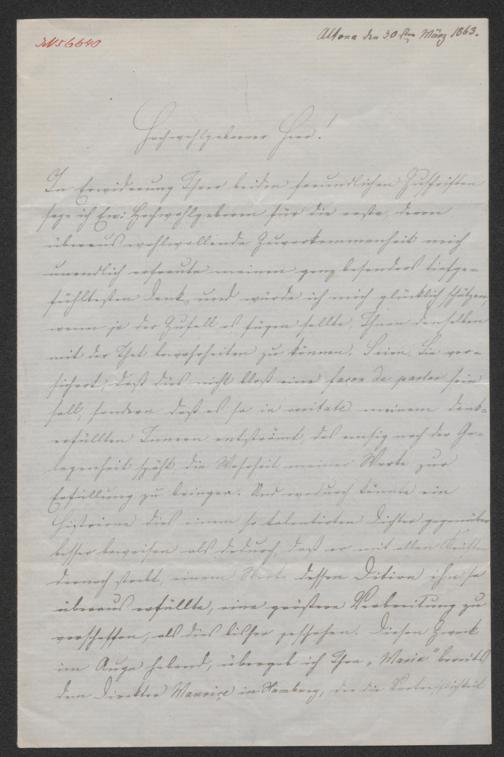 N 56640
Altona den 30sten März 1863.
Hochwohlgeborner Herr!
In Erwiderung Ihrer beiden freundlichen Zuschriften
sage ich Ew: Hochwohlgeboren für die erste, deren
überaus wohlwollende Zuvorkommenheit mich
unendlich erfreute meinen ganz besonders tiefge-
fühltesten Dank, und würde ich mich glücklich schätzen,
wenn je der Zufall es fügen sollte, Ihnen denselben
mit der That beweisen zu können. Seien Sie ver-
sichert, daß dies nicht bloß eine façon de parler sein
soll, sondern daß es so in veritate meinem dank-
erfüllten Innern entströmt, das emsig nach der Ge-
legenheit späht die Wahrheit meiner Worte zur
Erfüllung zu bringen. Und wodurch könnte ein
dies einem so talentirten Dichter gegenüber
besser beweisen als dadurch, daß er mit allen Kräften
darnach strebt, einem Werke dessen ihn so
überaus erfüllte, eine größere Verbreitung zu
verschaffen, als dies bisher geschehen. Diesen Zweck
im Auge habend, übergab ich Ihre „Maria" bereits
dem Direktor Maurice in Hamburg, der die